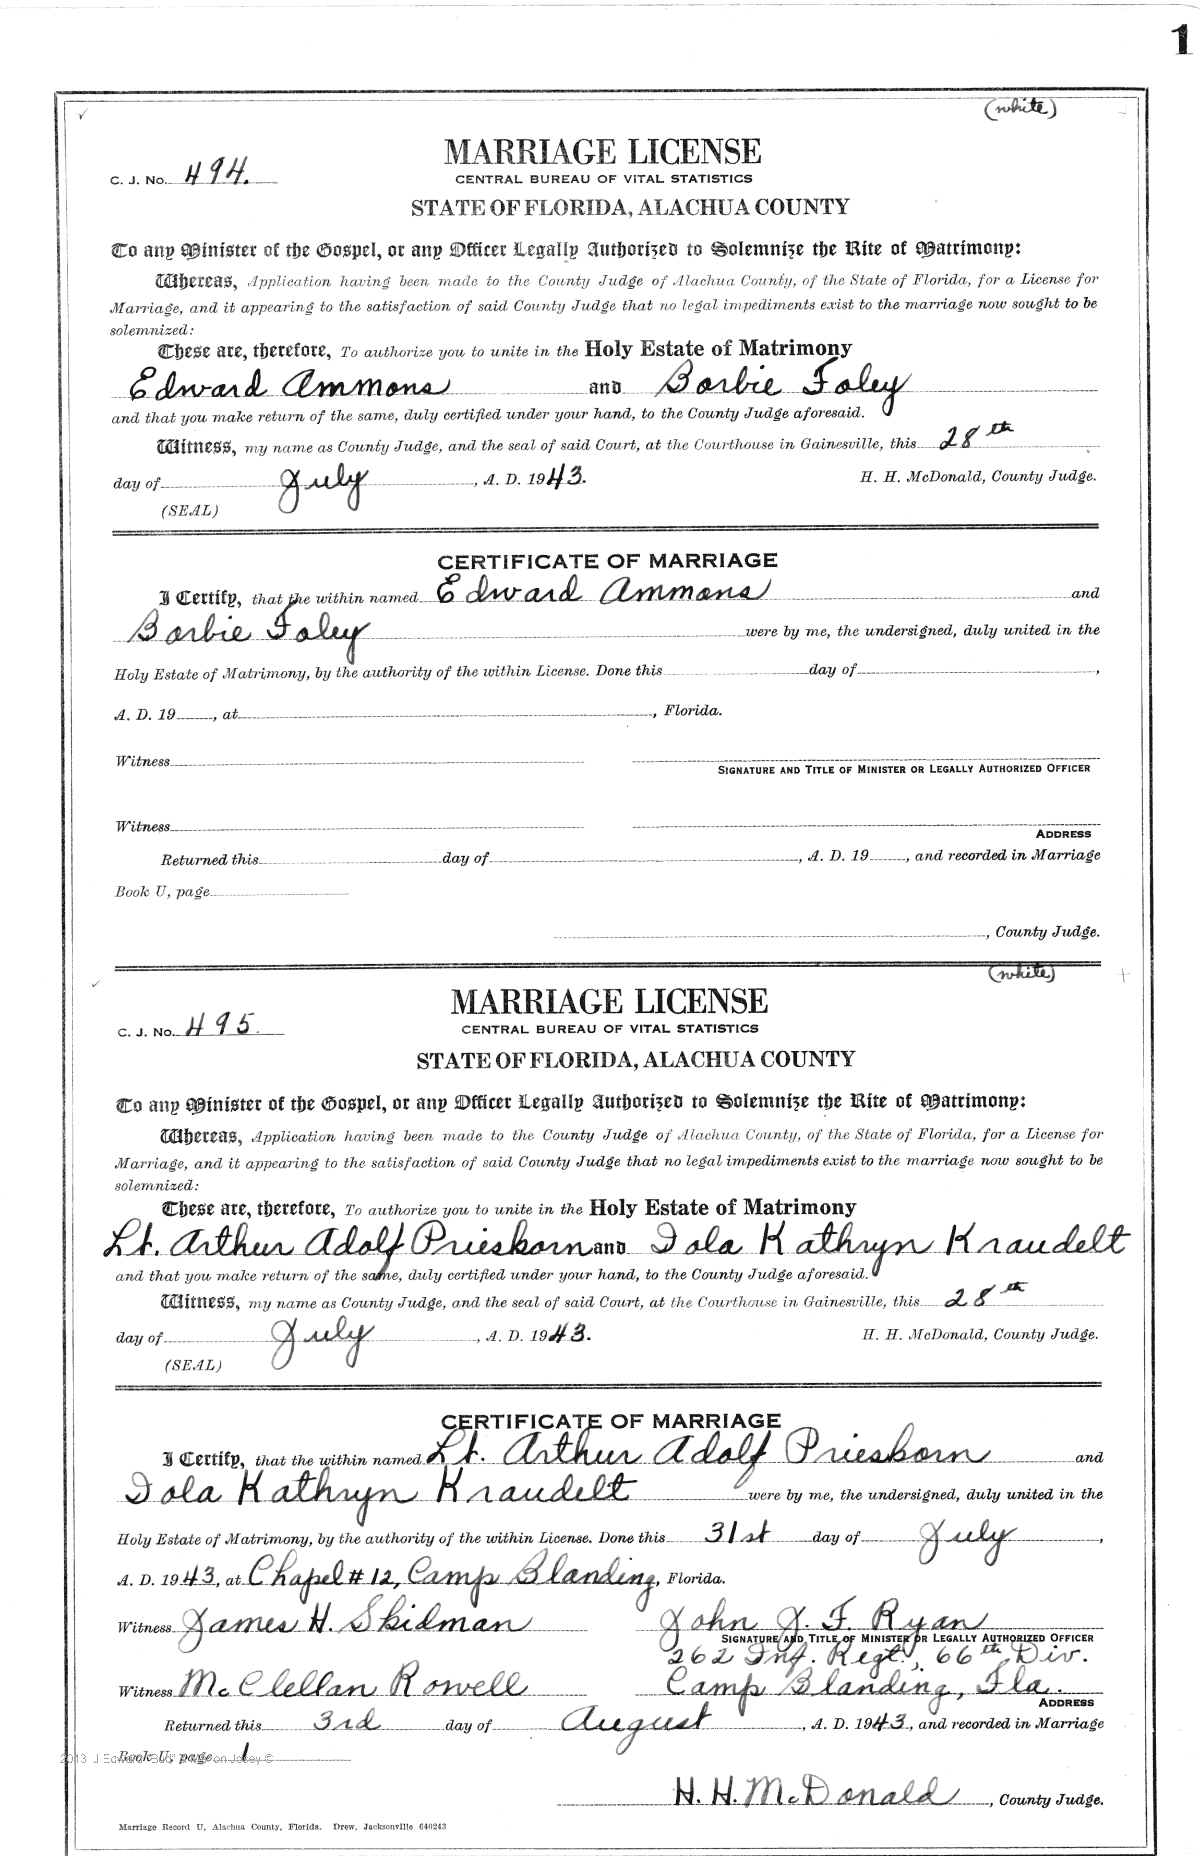 1
(white)
MARRIAGE LICENSE
C. J. No. 494.
CENTRAL BUREAU OF VITAL STATISTICS
STATE OF FLORIDA, ALACHUA COUNTY
To any Minister of the Gospel, or any Officer Legally Authorized to Solemnize the Rite of Matrimony:
Whereas, Application having been made to the County Judge of Alachua County, of the State of Florida, for a License for
Marriage, and it appearing to the satisfaction of said County Judge that no legal impediments exist to the marriage now sought to be
solemnized:
These are, therefore, To authorize you to unite in the Holy Estate of Matrimony
Edward Ammons and Barbie Foley
and that you make return of the same, duly certified under your hand, to the County Judge aforesaid.
Witness, my name as County Judge, and the seal of said Court, at the Courthouse in Gainesville, this 28th
day of July, A. D. 1943. H. H. McDonald, County Judge.
(SEAL)
CERTIFICATE OF MARRIAGE
I Certify, that the within named Edward Ammons and
Barbie Foley were by me, the undersigned, duly united in the
Holy Estate of Matrimony, by the authority of the within License. Done this day of ,
A. D. 19 , at , Florida.
Witness
SIGNATURE AND TITLE OF MINISTER OR LEGALLY AUTHORIZED OFFICER
Witness
ADDRESS
Returned this day of , A. D. 19 , and recorded in Marriage
Book U, page
, County Judge.
(white)
MARRIAGE LICENSE
C. J. No. 495.
CENTRAL BUREAU OF VITAL STATISTICS
STATE OF FLORIDA, ALACHUA COUNTY
To any Minister of the Gospel, or any Officer Legally Authorized to Solemnize the Rite of Matrimony:
Whereas, Application having been made to the County Judge of Alachua County, of the State of Florida, for a License for
Marriage, and it appearing to the satisfaction of said County Judge that no legal impediments exist to the marriage now sought to be
solemnized:
These are, therefore, To authorize you to unite in the Holy Estate of Matrimony
Lt. Arthur Adolf Prieskorn and Iola Kathryn Kraudelt
and that you make return of the same, duly certified under your hand, to the County Judge aforesaid.
Witness, my name as County Judge, and the seal of said Court, at the Courthouse in Gainesville, this 28th
day of July, A. D. 1943. H. H. McDonald, County Judge.
(SEAL)
CERTIFICATE OF MARRIAGE
I Certify, that the within named Lt. Arthur Adolf Prieskorn and
Iola Kathryn Kraudelt were by me, the undersigned, duly united in the
Holy Estate of Matrimony, by the authority of the within License. Done this 31st day of July,
A. D. 1943, at Chapel # 12, Camp Blanding, Florida.
Witness James H. Skidman John J. F. Ryan
SIGNATURE AND TITLE OF MINISTER OR LEGALLY AUTHORIZED OFFICER
262 Inf. Regt., 66th Div.
Witness McClellan Rowell Camp Blanding, Fla.
ADDRESS
Returned this 3rd day of August, A. D. 1943, and recorded in Marriage
Book U, page 1
H. H. McDonald, County Judge.
Marriage Record U, Alachua County, Florida. Drew, Jacksonville 640243